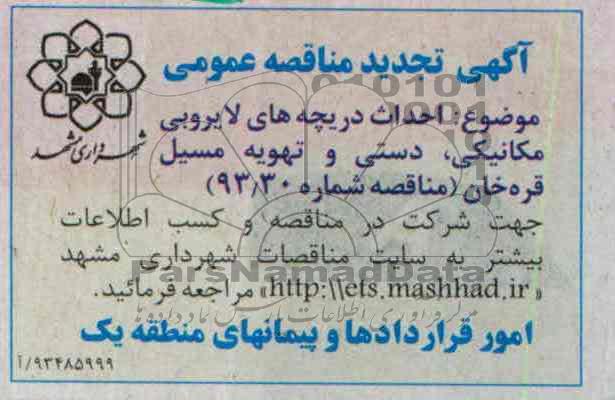 آگهی تجدید مناقصه عمومی
شهرداری مشهد
موضوع: احداث دریچه های لایروبی
مکانیکی، دستی و تهویه مسیل
قره‌خان (مناقصه شماره ۹۳٫۳۰)
جهت شرکت در مناقصه و کسب اطلاعات
بیشتر به سایت مناقصات شهرداری مشهد
«http:\\ets.mashhad.ir» مراجعه فرمائید.
امور قراردادها و پیمانهای منطقه یک
۹۳۴۸۵۹۹۹/آ
ParsNamadData
مرکز فرآوری اطلاعات پارس نماد داده‌ها